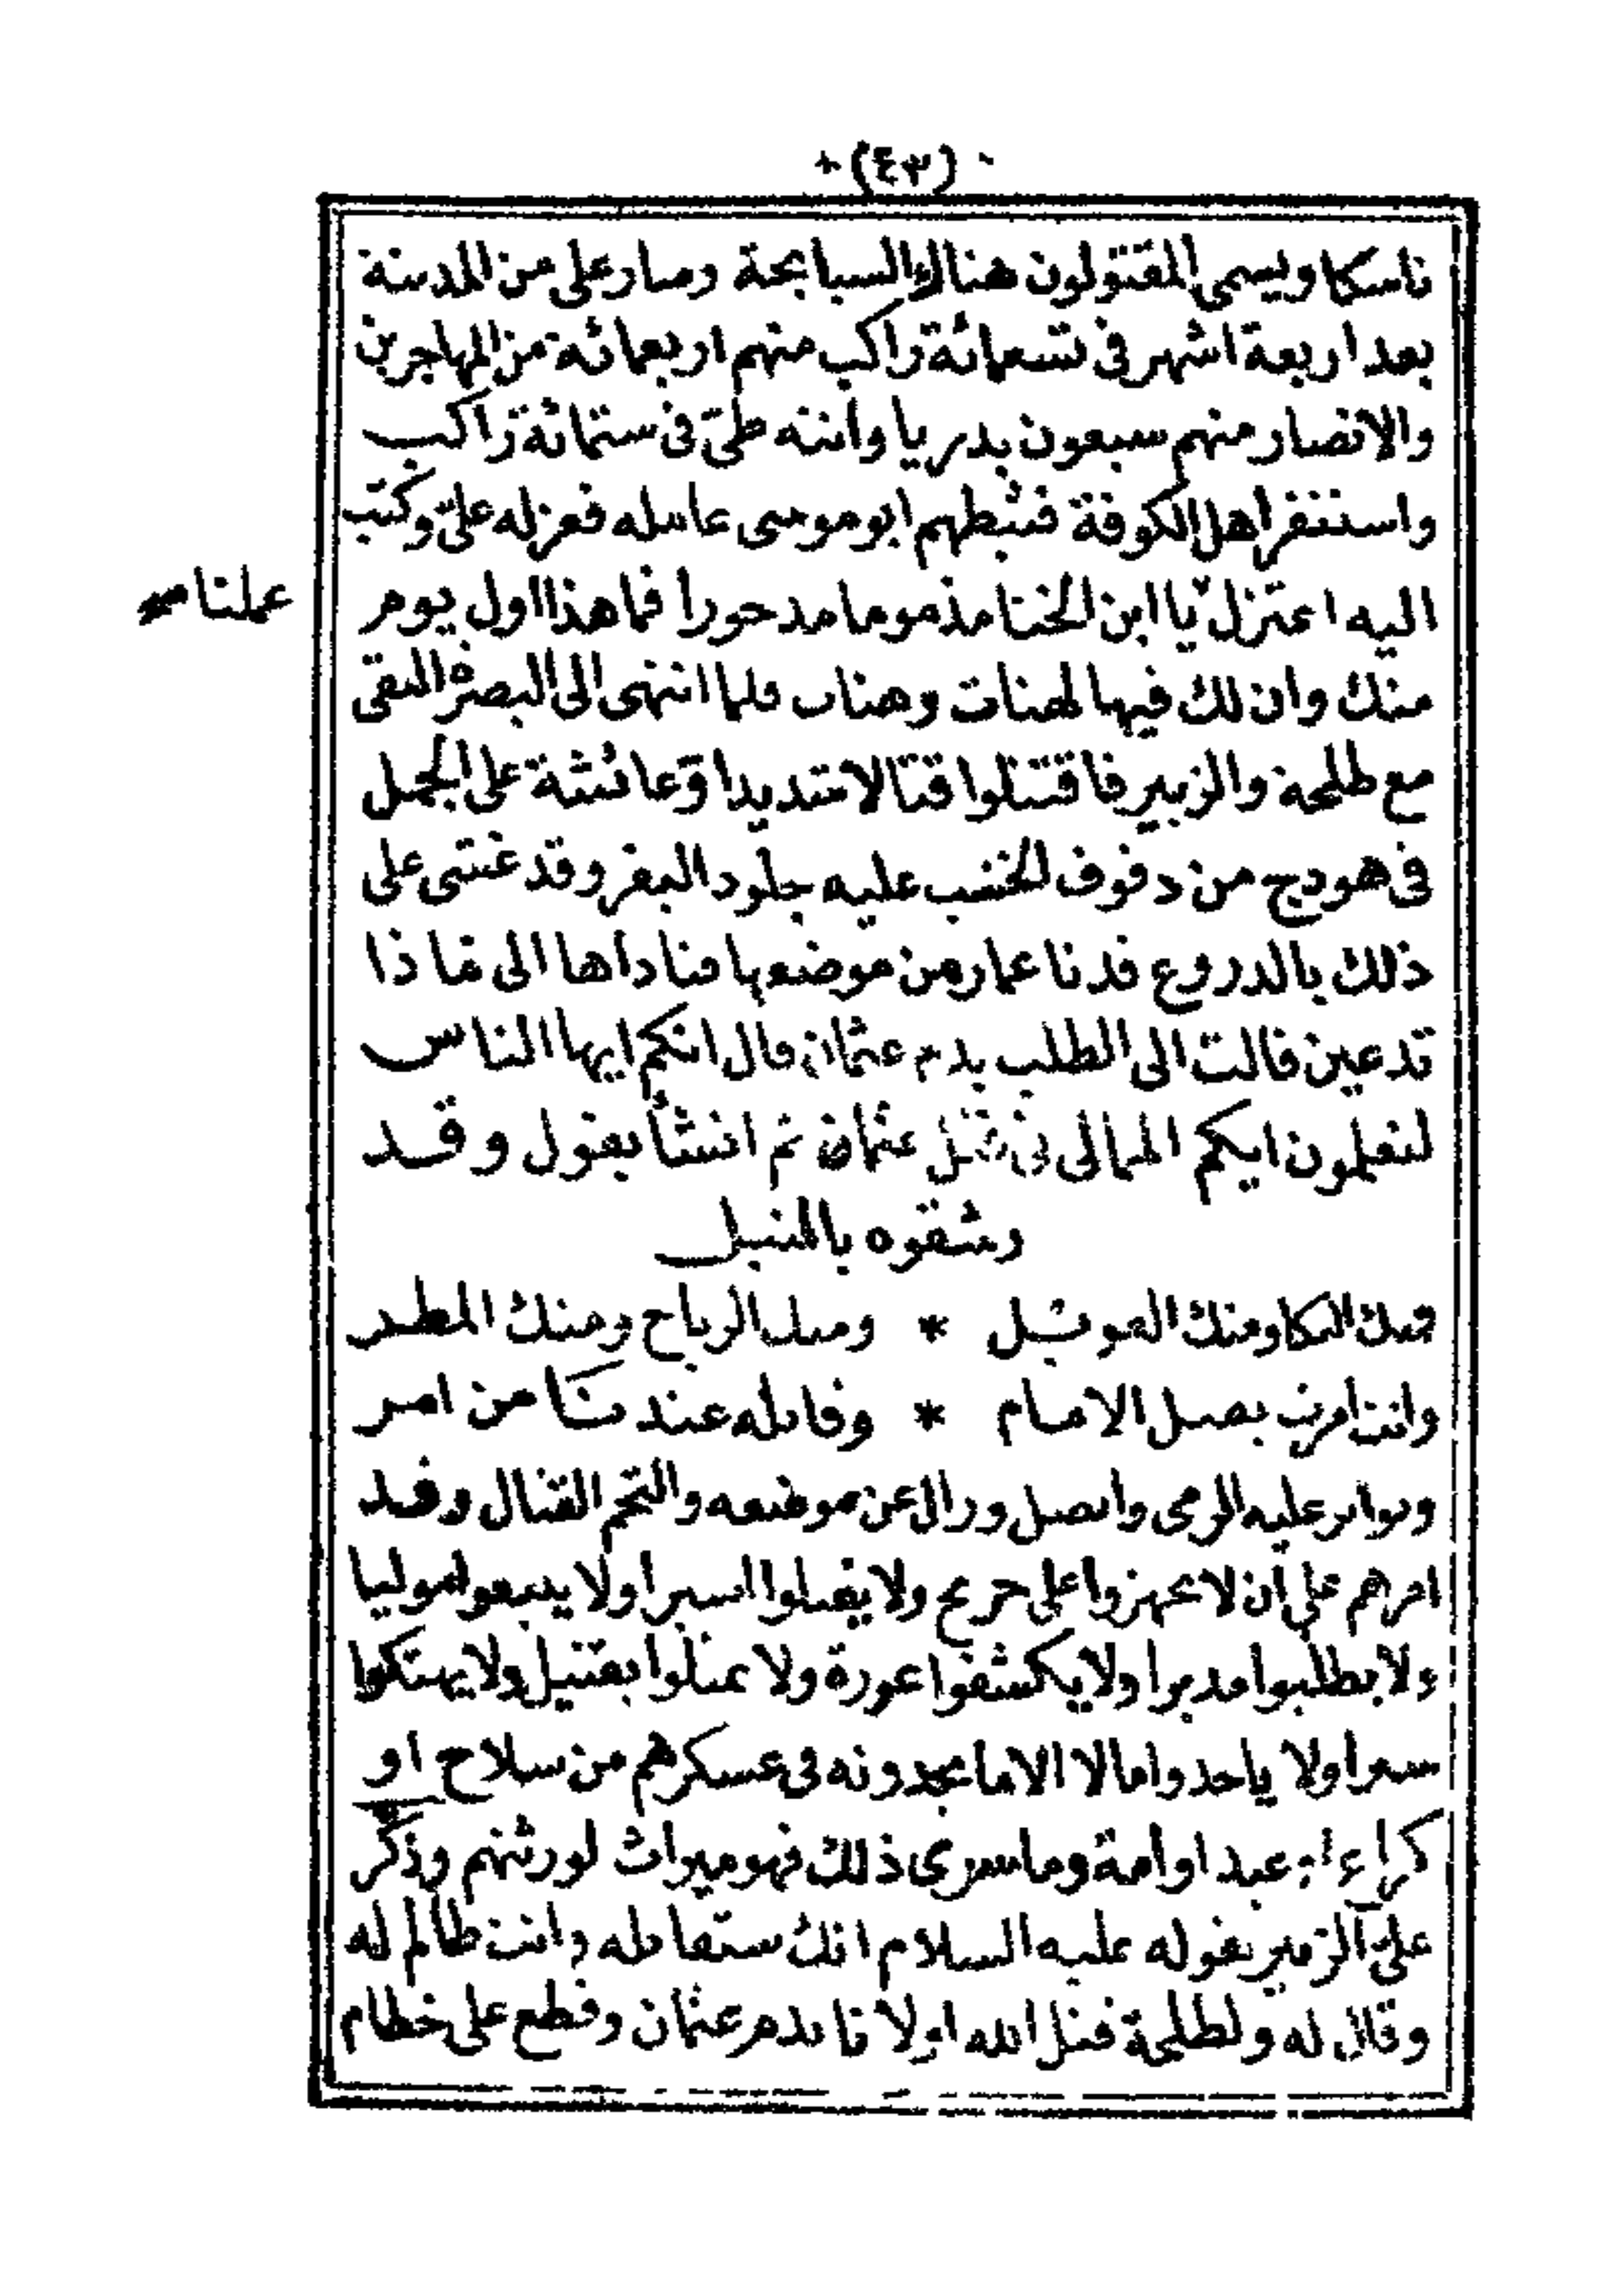 (٤٣)
ناسكا ويسمى المقتولون هناك السبابحة وسار على من المدينة
بعد اربعة اشهر فى تسعمائة راكب منهم اربعمائة من المهاجرين
والانصار منهم سبعون بدريا واتته طى فى ستمائة راكب
واستنفر اهل الكوفة فثبطهم ابو موسى عامله فعزله على وكتب
اليه اعتزل يا ابن الخنا مذموما مدحورا فما هذا اول يوم
عملنا
منك وان لك فيها لهنات وهنات فلما انتهى الى البصرة التقى
مع طلحة والزبير فاقتتلوا قتالا شديدا وعائشة على الجمل
فى هودج من دفوف الخشب عليه جلود البقر وقد غشى على
ذلك بالدروع فدنا عمار من موضعها فناداها الى ماذا
تدعين قالت الى الطلب بدم عثمان قال انكم ايها الناس
لتعلمون ايكم الممالى فى قتل عثمان ثم انشأ يقول وقد
رشقوه بالنبل
فمنك البكا ومنك العويل * ومنك الرياح ومنك المطر
وانت امرت بقتل الامام * وقاتله عندنا من امر
وتواتر عليه الرمى واتصل وزال عن موضعه والتحم القتال وقد
امرهم على ان لا يجهزوا على جريح ولا يقتلوا اسيرا ولا يتبعوا موليا
ولا يطلبوا مدبرا ولا يكشفوا عورة ولا يمثلوا بقتيل ولا يهتكوا
سترا ولا ياخذوا مالا الا ما يجدونه فى عسكرهم من سلاح او
كراع او عبد او امة وما سوى ذلك فهو ميراث لورثتهم وذكر
على الزبير بقوله عليه السلام انك ستقاتله وانت ظالم له
وقال له ولطلحة قتل الله اولانا بدم عثمان وقطع على خطام